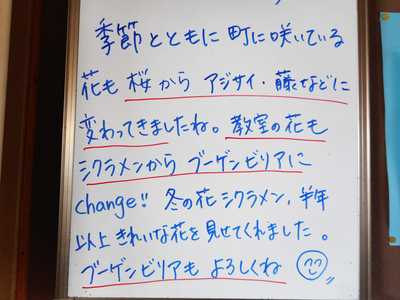 季節とともに町に咲いている
花も桜からアジサイ・藤などに
変わってきましたね。教室の花も
シクラメンからブーゲンビリアに
change!! 冬の花シクラメン、半年
以上きれいな花を見せてくれました。
ブーゲンビリアもよろしくね